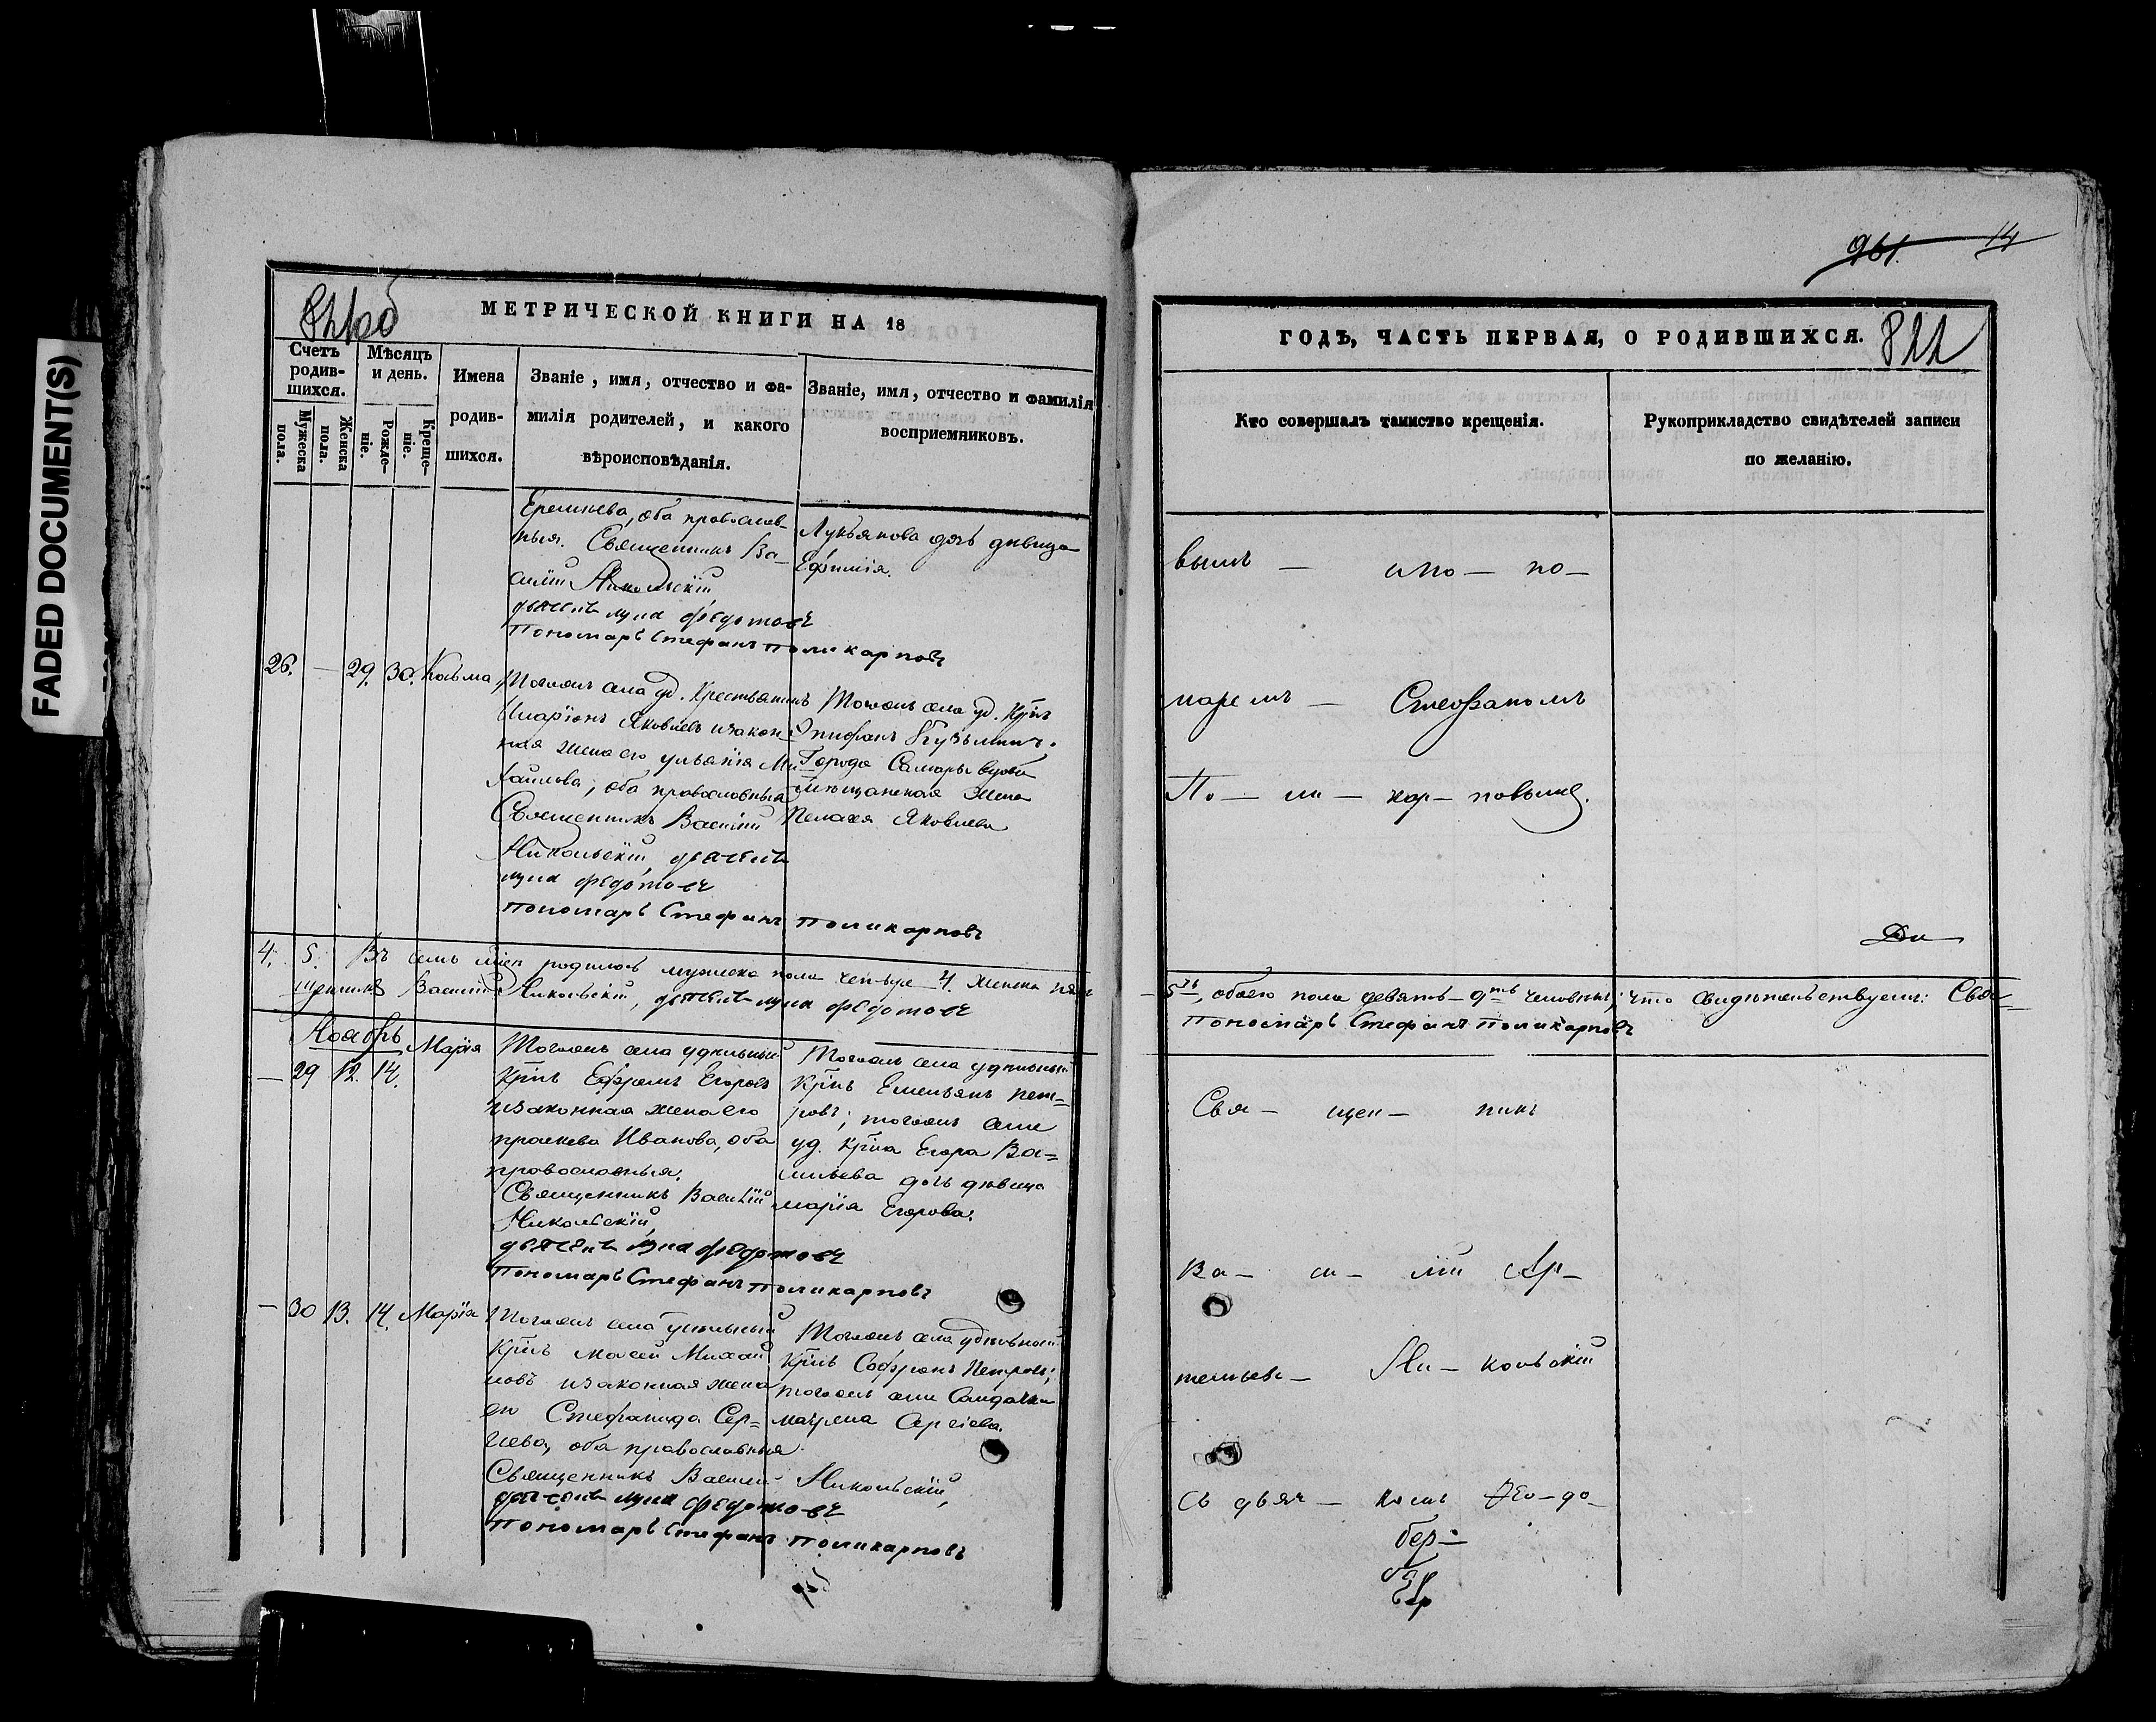 FADED DOCUMENT(S)
821 об
МЕТРИЧЕСКОЙ КНИГИ НА 18
Счетъ родив-шихся.
Мѣсяцъ и день.
Имена родив-шихся.
Званіе, имя, отчество и фа-
милія родителей, и какого
вѣроисповѣданія.
Званіе, имя, отчество и фамилія
восприемниковъ.
Мужеска пола.
Женска пола.
Рожде-ніе.
Креще-ніе.
Еремѣева, оба православ-
ныя. Священникъ Ва-
силій Никольскій,
дьячекъ Лука Федотовъ
Пономарь Стефанъ Поликарповъ
Лукьянова дочь дѣвица
Ефимія.
26. — 29. 30. Козьма
Тогожъ села уд. Крестьянинъ
Иларіонъ Яковлевъ и закон-
ная жена его Ульянія Ми-
хаилова, оба православныя
Священникъ Василій
Никольскій, дьячекъ
Лука Федотовъ
Пономарь Стефанъ Поликарповъ
Тогожъ села уд. Кр̃нъ
Епифанъ Кузьминъ.
Города Самары вдова
мѣщанская жена
Пелагея Яковлева
4. 5. Въ семъ м̃цѣ родилось мужеска пола четыре — 4. женска пять
щенникъ Василій Никольскій, дьячекъ Лука Федотовъ
Ноябрь
— 29 12. 14. Марія
Тогожъ села удѣльный
Кр̃нъ Ефремъ Егоровъ
и законная жена его
Праскева Иванова, оба
православныя.
Священникъ Василій
Никольскій,
дьячекъ Лука Федотовъ
Пономарь Стефанъ Поликарповъ
Тогожъ села удѣльный
Кр̃нъ Емельянъ Пет=
ровъ; тогожъ села
уд. Кр̃на Егора Ва=
сильева дочь дѣвица
Марія Егорова.
— 30 13. 14. Марія
Тогожъ села удѣльный
Кр̃нъ Мосей Михай
ловъ и законная жена
его Стефанида Сер=
гѣева, оба православныя.
Священникъ Василій Никольскій,
дьячекъ Лука Федотовъ
Пономарь Стефанъ Поликарповъ
Тогожъ села удѣльный
Кр̃нъ Софронъ Петровъ;
тогожъ села Солдатка
Матрена Сергіева.
961. 14
ГОДЪ, ЧАСТЬ ПЕРВАЯ, О РОДИВШИХСЯ.
822
Кто совершалъ таинство крещенія.
Рукоприкладство свидѣтелей записи
по желанію.
вымъ — и по — но —
маремъ — Стефаномъ
По — ли — кар — повымъ.
5ть, обоего пола девять — 9ть человѣкъ; что свидѣтельствуемъ: Свя-
Пономарь Стефанъ Поликарповъ
Свя — щен — никъ
Ва — си — лій Ар —
темьевъ — Ни — кольскій
Съ дьяч — комъ Ѳео — до —